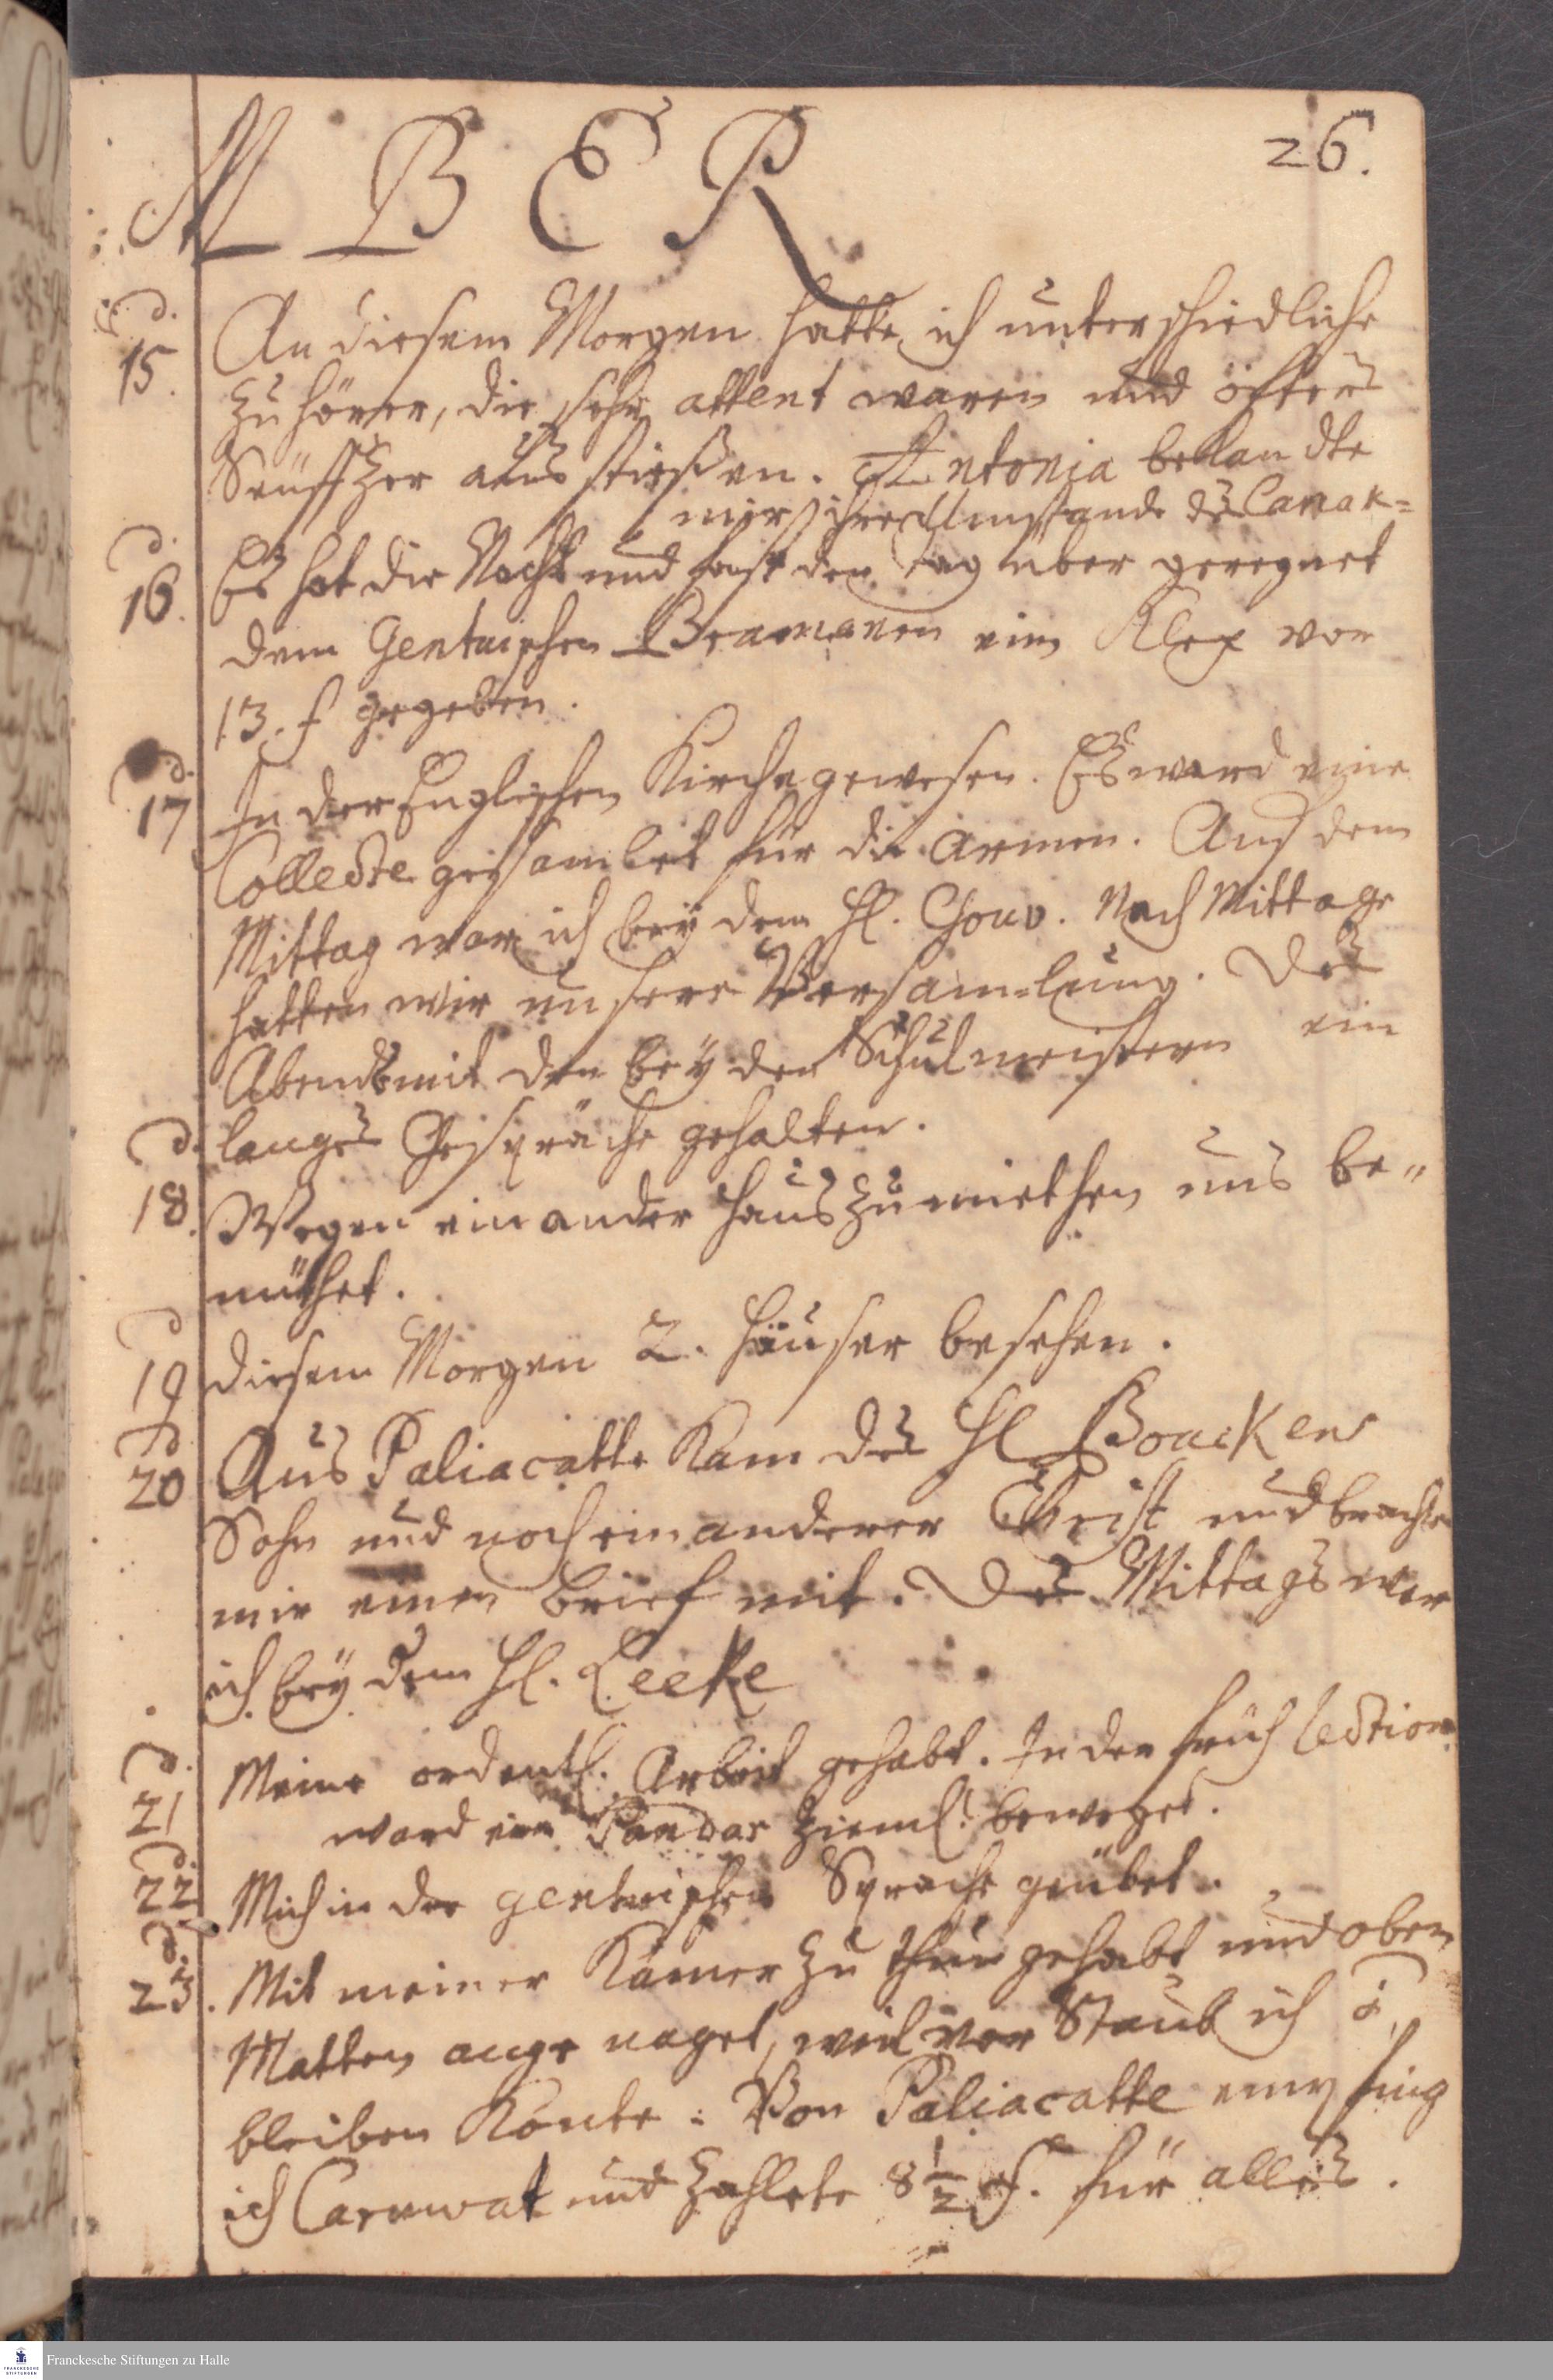 26.
MBER
d. 15. An diesem Morgen hatte ich unterschiedliche
Zuhörer, die sehr attent waren und öfters
Seuffzer aus stießen. Antonia bekandte
mir ihre Umstande des Canak=
d. 16. Es hat die Nacht und fast den tag über geregnet
dem Gentuischen Bramanen ein Kleg vor
13. f gegeben.
d. 17 In der Englischen Kirche gewesen. Es ward eine
Collecte gesamlet für die Armen. Auf dem
Mittag war ich bey dem H. Gouv. Nach Mittage
hatten wir unsere Versamlung. Des
Abends mit den beyden Schulmeistern ein
langes Gespräche gehalten.
d. 18. Wegen ein ander Haus zu miethen uns be-
mühet.
d 19 diesem Morgen 2. Häuser besehen.
d 20 Aus Paliacatte kam des H Bouckens
Sohn und noch ein anderer Christ und brachte
mir einen brief mit. Des Mittags war
ich bey dem H. Leeke
d. 21 Meine ordentl. Arbeit gehabt. In der früh lection
ward ein Pandar zieml. beweget.
d. 22 Mich in der gentuischen Sprache geübet.
d. 23. Mit meiner Kamer zu thun gehabt und oben
Matten ange nagel, weil vor Staub ich
bleiben könte. Von Paliacatte empfing
ich Caruwat und zahlete 8 1/2 f. für alles.
Franckesche Stiftungen zu Halle